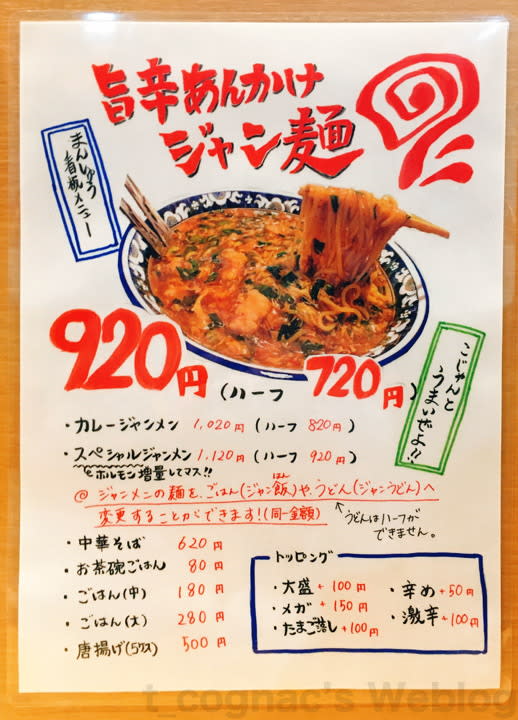 旨辛あんかけ
ジャン麺
まんしゅう
看板メニュー
920円 (ハーフ 720円)
こじゃんと
うまいぜよ!!
・カレージャンメン 1,020円 (ハーフ 820円)
・スペシャルジャンメン 1,120円 (ハーフ 920円)
ホルモン増量してマス!!
◎ジャンメンの麺を、ごはん(ジャン飯)や、うどん(ジャンうどん)へ
はん
変更することができます!(同一金額)
うどんはハーフが
できません。
・中華そば 620円
・お茶碗ごはん 80円
・ごはん(中) 180円
・ごはん(大) 280円
・唐揚げ(5ケ入) 500円
トッピング
・大盛+100円
・メガ+150円
・たまご落し+100円
・辛め+50円
・激辛+100円
t_cognac's Weblog